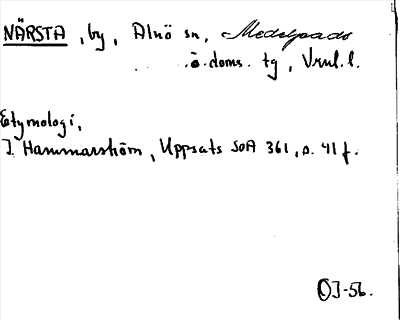 NÄRSTA, by, Alnö sn, Medelpads
ö. doms. tg, Vrnl. l.
Etymologi,
I. Hammarström, Uppsats SOA 361, s. 41 f.
OJ-56.